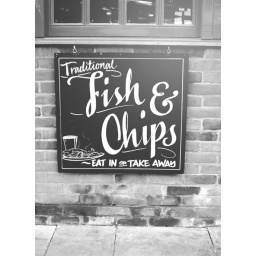 Traditional
Fish &
Chips
EAT IN OR TAKE AWAY